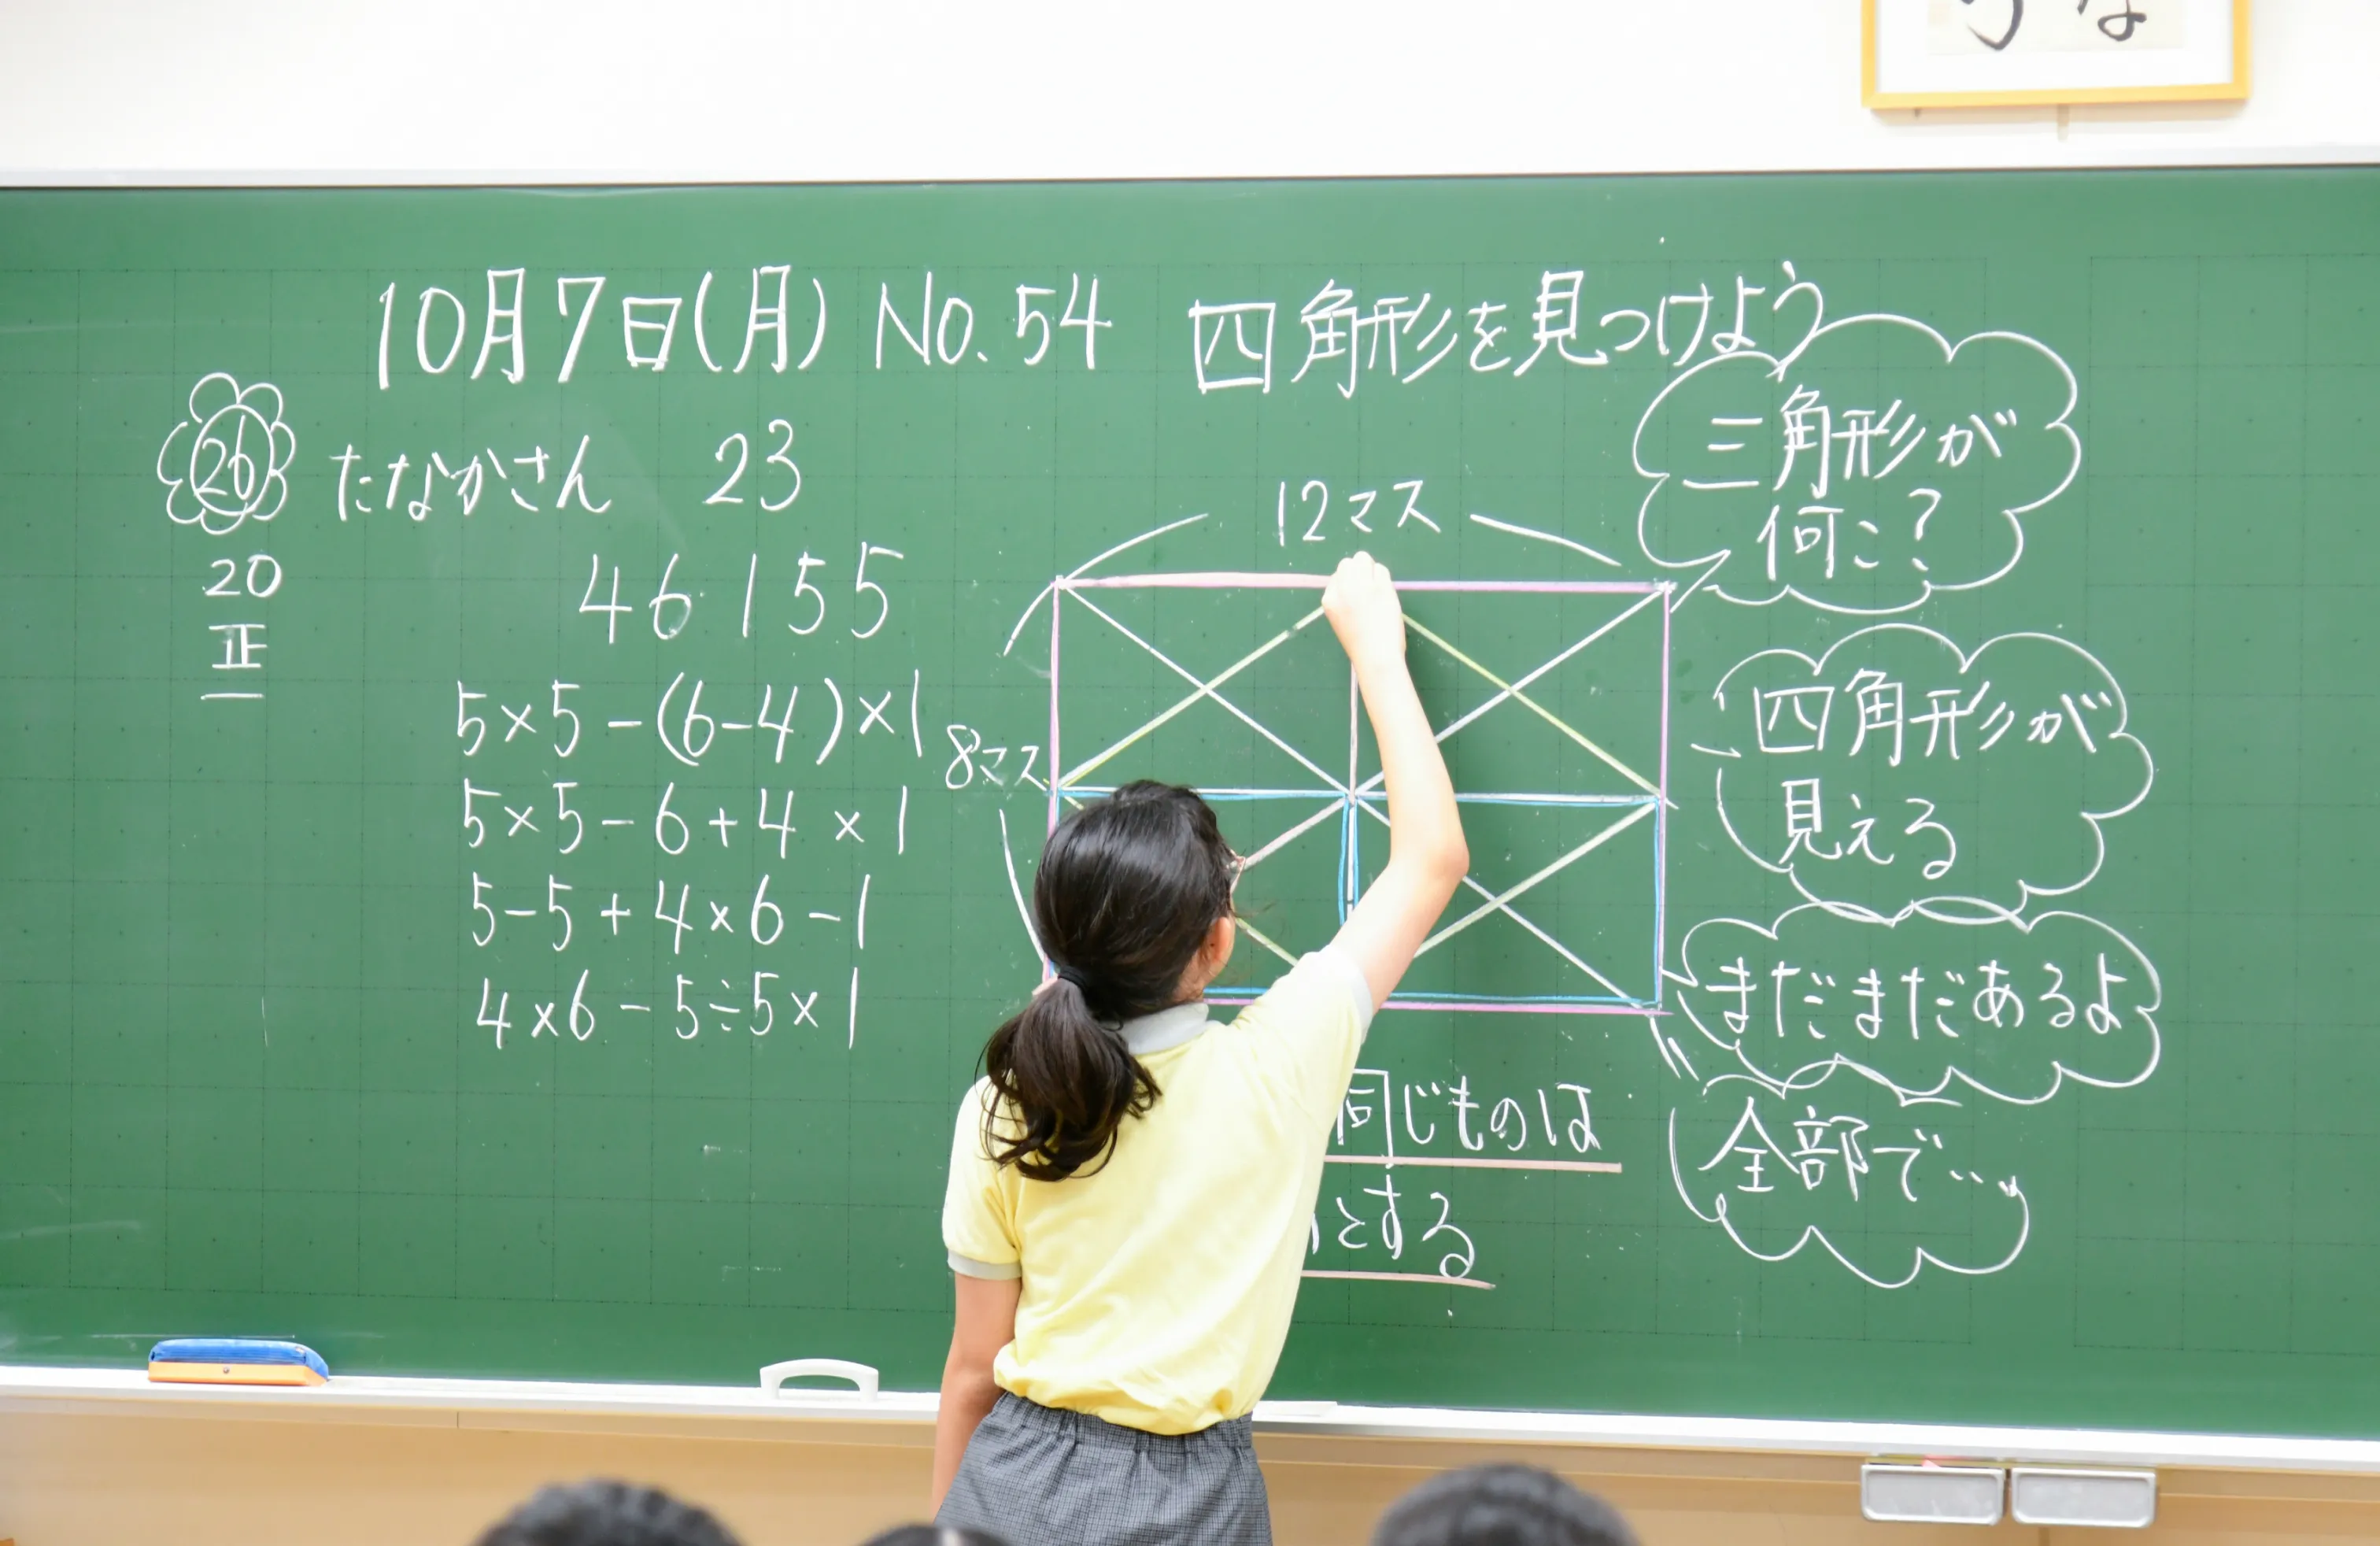 な
10月7日(月) No.54 四角形を見つけよう
26
20
正
たなかさん 23
4 6 1 5 5
5×5-(6-4)×1
5×5-6+4×1
5-5+4×6-1
4×6-5÷5×1
12マス
8マス
同じものは
とする
三角形が
何こ?
四角形が
見える
まだまだあるよ
全部で…